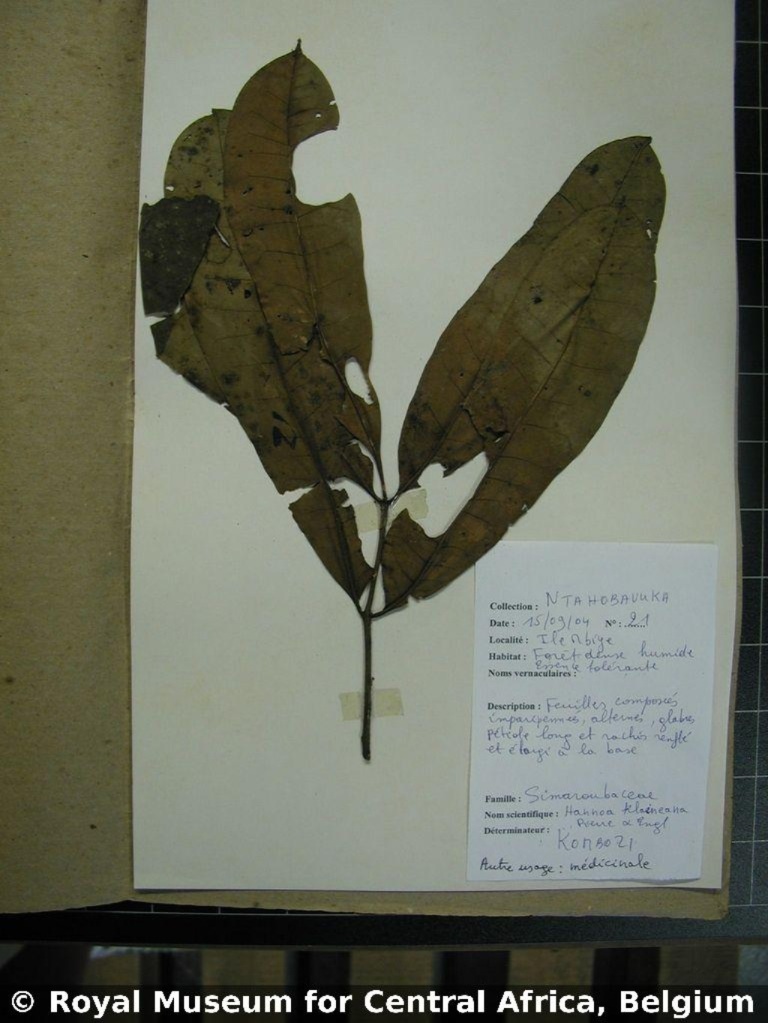 Collection : NTAHOBAVUKA
Date : 15/09/04 N° : 21
Localité : Ile Mbiye
Habitat : Forêt dense humide
Essence tolérante
Noms vernaculaires :
Description : Feuilles composées
imparipennés, alternes, glabres
pétiole long et rachis renflé
et élargi à la base
Famille : Simaroubaceae
Nom scientifique : Hannoa klaineana
Pierre & Engl
Déterminateur :
KOMBOZI
Autre usage : médicinale
© Royal Museum for Central Africa, Belgium